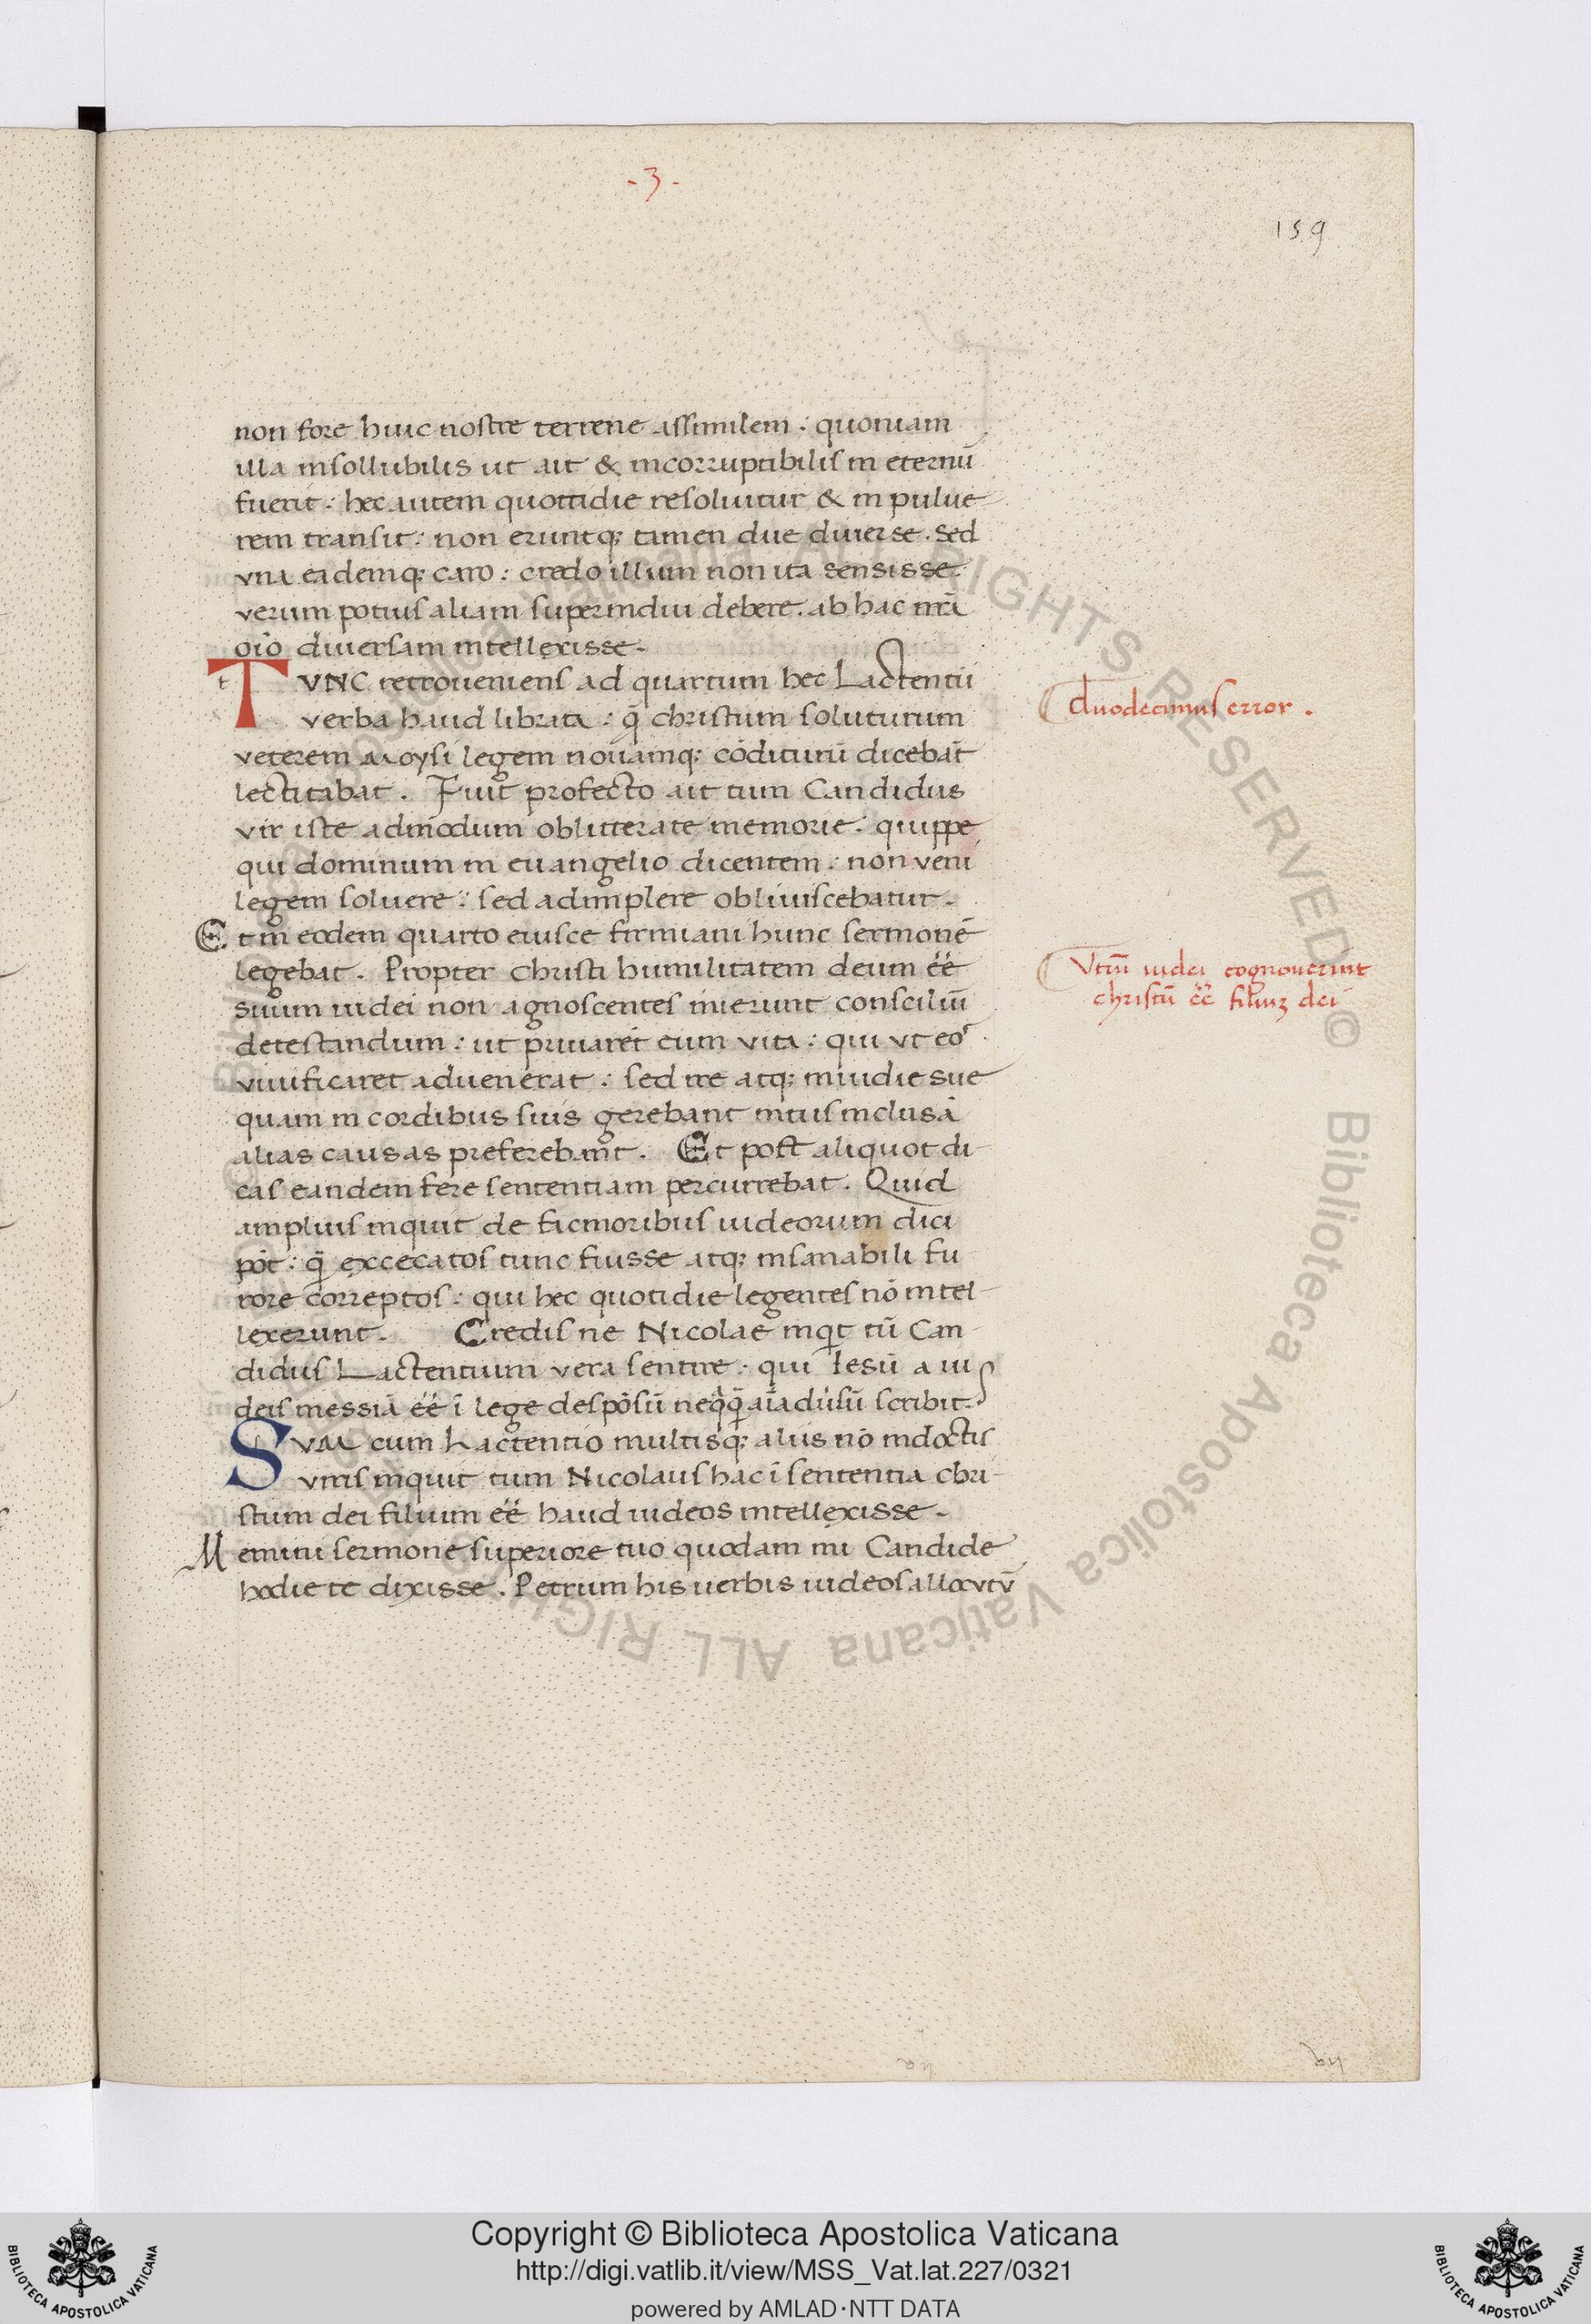 - 3 -
159
non fore huic nostre terrene assimilem : quoniam
illa insollubilis ut ait & incorruptibilis in eternū
fuerit : hec autem quottidie resoluitur & in pulue
rem transit : non eruntq; tamen due diuerse . sed
vna eademq; caro : credo illum non ita sensisse .
verum potius aliam superindui debere . ab hac nr̄a
oīo diuersam intellexisse .
t TVNC retroueniens ad quartum hec Lactentii
verba haud librata : q̄ christum soluturum
veterem Moysi legem nouamq; cōditurū dicebāt
lectitabat . Fuit profecto ait tum Candidus
vir iste admodum oblitterate memorie : quippe
qui dominum in euangelio dicentem : non veni
legem soluere : sed adimplere obliuiscebatur .
Et in eodem quarto eiusce firmiani hunc sermonē
legebat . Propter christi humilitatem deum eē
suum iudei non agnoscentes inierunt consciliū
detestandum : ut priuarēt eum vita : qui vt eos
viuificaret aduenerat : sed ire atq; inuidie sue
quam in cordibus suis gerebant intus inclusā
alias causas preferebant . Et post aliquot di
cas eandem fere sententiam percurrebat . Quid
amplius inquit de facinoribus iudeorum dici
pōt : q̄ excecatos tunc fuisse atq; insanabili fu
rore correptos : qui hec quotidie legentes nō intel
lexerunt . Credis ne Nicolae inqt tū Can
didus Lactentium vera sentire : qui Iesū a iu
deis messiā eē ī lege despōsū scribit .
SVM cum Lactentio multisq; aliis nō indoctis
viris inquit tum Nicolaus hac ī sententia chri
stum dei filium eē haud iudeos intellexisse .
Memini sermone superiore tuo quodam mi Candide
hodie te dixisse . Petrum his uerbis iudeos allocutū
duodecimus error .
Vtrū iudei cognouerint
christū eē filiuȝ dei
Copyright © Biblioteca Apostolica Vaticana
http://digi.vatlib.it/view/MSS_Vat.lat.227/0321
powered by AMLAD·NTT DATA
BIBLIOTECA APOSTOLICA VATICANA
BIBLIOTECA APOSTOLICA VATICANA